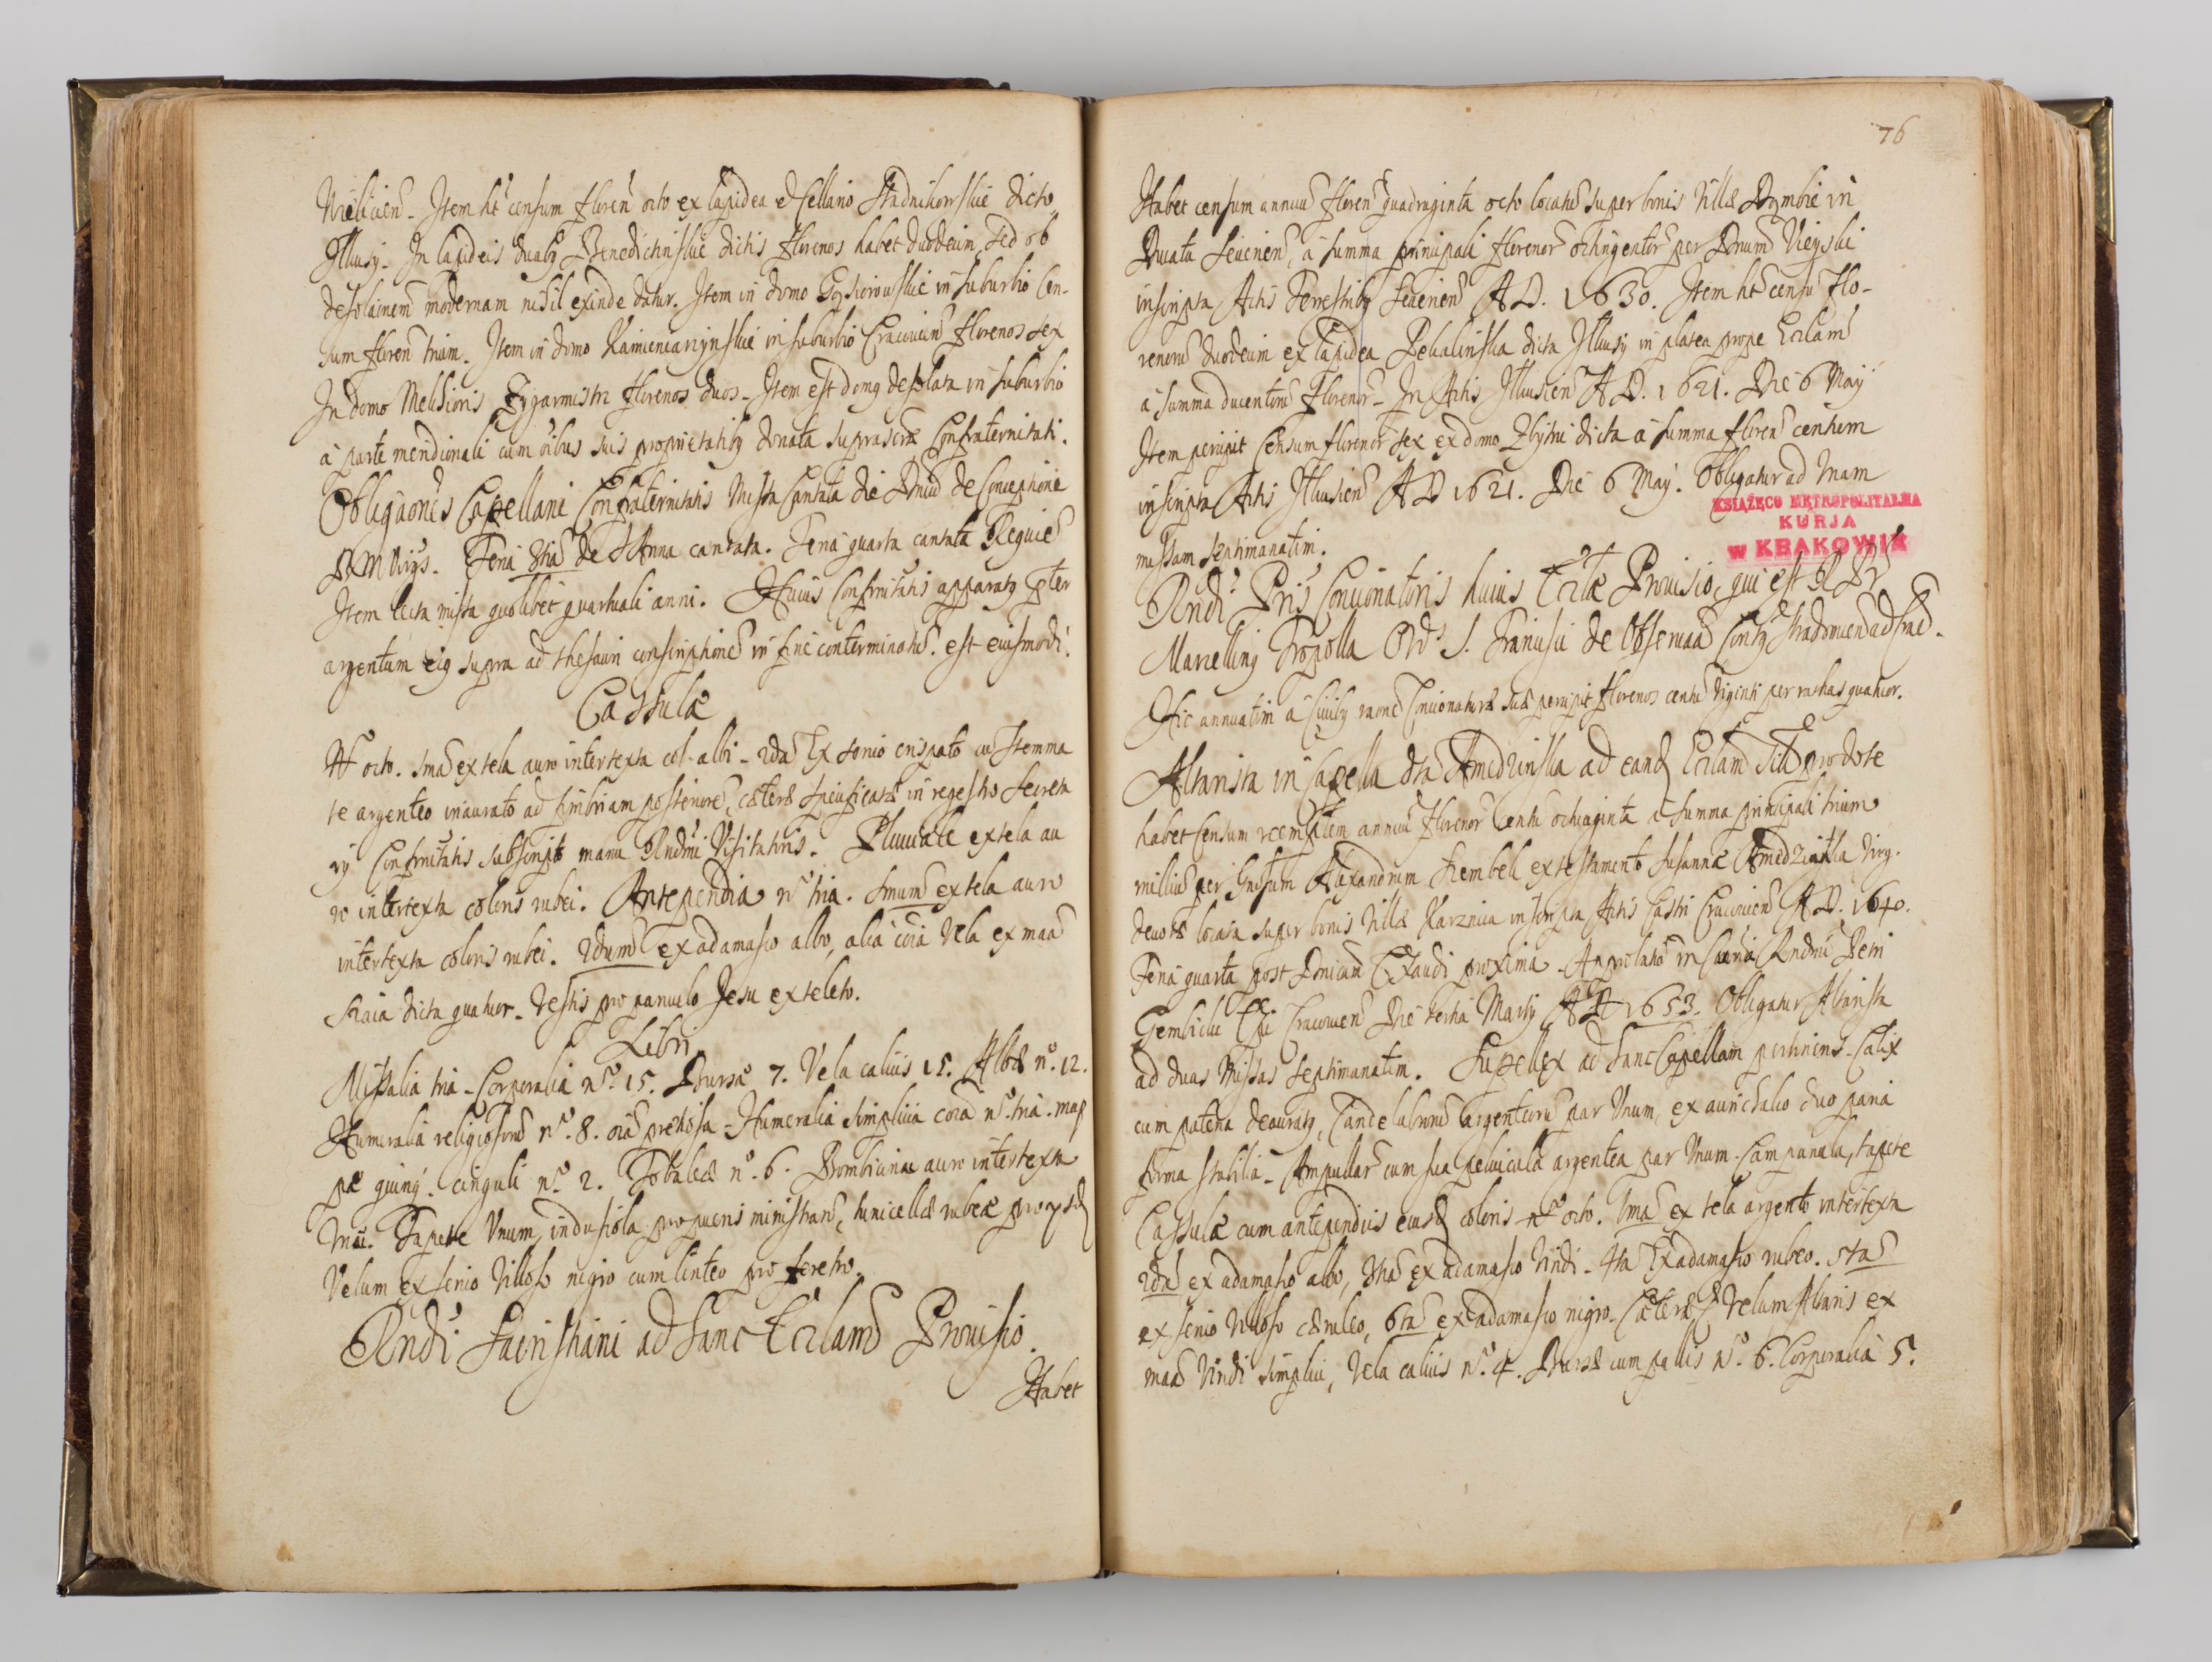 Item ht censum floren octo ex lapidea et Cellario Stadnikowskie dicto
Ilkusij. In lapideis duabz Benedictinskie dictis florenos habet duodecim, sed ob
desolaonem modernam nihil exinde datur. Item in domo Gąsiorowskie in suburbio Cen-
sum floren trium. Item in domo Kamieniarzynskie in suburbio Cracovien florenos sex
In domo Melchioris Zygarmistri florenos duos. Item est domg desolata in suburbio
a parte meridionali cum oibus suis proprietatibg donata suprascrae Confraternitati.
Obligaones Capellani Confraternitatis Missa Cantata die Dnico de Conceptione
B M Virgs. Feria 3tia de S Anna cantata. Feria quarta cantata Requie
Item lecta missa quolibet quartuali anni. Huius Confrnitatis apparatg pter
argentum eig supra ad thesauri conscriptione in fine conterminatu. est eiusmodi.
Cassulae
No octo. 1ma ex tela auro intertexta col. albi - 2da Ex sonio crispato cu Stemma
te argenteo inaurato ad fimbriam posteriore, caetera specificata in regestro Secreta
rij Confrnitatis subscripto manu Rndmi Visitatoris. Pluviale ex tela au
ro intertexta coloris rubei. Antependia no tria. 1mum ex tela auro
intertexta coloris rubei. 2dum ex adamasco albo, alia coia Vela ex maa
Kitaia dicta quatuor. Vestis pro parvulo Jesu ex teleto.
Libri
Missalia tria - Corporalia no. 15. Bursae 7. Vela calicis 15. Albae no. 12.
Humeralia religiosoru no. 8. oia pretiosa - Humeralia simplicia coia no. tria. map
pae quinq. cinguli no. 2. Tobaleae no. 6. Bombicinae auro intertexta
una. Tapete Unum, indusiola pro pueris ministran, tunicellae rubeae pro ysd
Velum ex serio Villoso nigro cum linteo pro feretro.
Rndi Sacristiani ad hanc Ecclam Provisio.
Habet
76
Habet censum annuu floren quadraginta octo locatu super bonis Villae Dąmbie in
Ducatu Severien, a summa principali florenor octingentor per Dnum Uieyski
inscripta Actis Terrestribg Severien A D. 1630. Item ht censu flo-
renoru duodecim ex lapidea Pekalinska dicta Ilkusij in platea prope Ecclam
a summa ducentoru Florenor - In Actis Ilkusien A D. 1621. Die 6 Maij
Item percipit Censum florenor sex ex domo Zbytni dicta a summa floren centum
inscripta Actis Ilkusien A D 1621. Die 6 Maij. Obligatur ad Unam
missam septimanatim.
KSIĄŻĘCO METROPOLITALNA
KURJA
W KRAKOWIE
Rndi Pris Concionatoris huius Eccliae Provisio, qui est R Pr
Marcellinq Tropolla Ord S. Francisci de Observaa Contg Stradomien ad Crac.
Hic annuatim a Civibg raone Concionaturae suae percipit florenos centu viginti per rathas quatuor.
Altarista in Capella dta Amedzinska ad eand Ecclam Sita pro dote
habet Censum reemptlem annuu Florenor Centu octuaginta a summa principali trium
milliu per Gnosum Alexandrum Srembek ex testamento Susannae Amedzinska Virg.
devotae locata super bonis Villae Karznica inscripta Actis Castri Cracovien A D. 1640.
Feria quarta post Dnicam Exaudi proxima. Approbatio in Curia Rndmi Petri
Gembicki Epi Cracovien Die tertia Martij A D 1653. Obligatur Altarista
ad duas Missas septimanatim. Supellex ad hanc Capellam pertinens. Calix
cum patena deauratg, Candelabroru argenteoru par Unum, ex aurichalco duo paria
forma stabilia. Ampullar cum sua pelvicula argentea par Unum. Campanula, tapete
Cassulae cum antependiis eiusd coloris no octo. 1ma ex tela argento intertexta
2da ex adamasco albo, 3tia ex adamasco Viridi. 4ta Ex adamasco rubeo. 5ta
ex serio Villoso caeruleo, 6ta ex adamasco nigro. Caeterae Velum Altaris ex
maa Viridi simplici, Vela calicis no. 4. Bursae cum pallis no. 6. Corporalia 5.